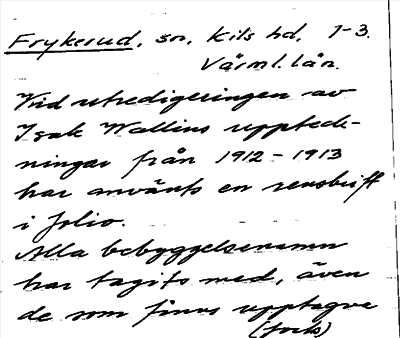 Frykerud, sn, Kils hd, 1-3.
Värml. län.
Vid utredigeringen av
Isak Wallins uppteck-
ningar från 1912-1913
har använts en renskrift
i folio.
Alla bebyggelsenamn
har tagits med, även
de som finns upptagna
(forts)